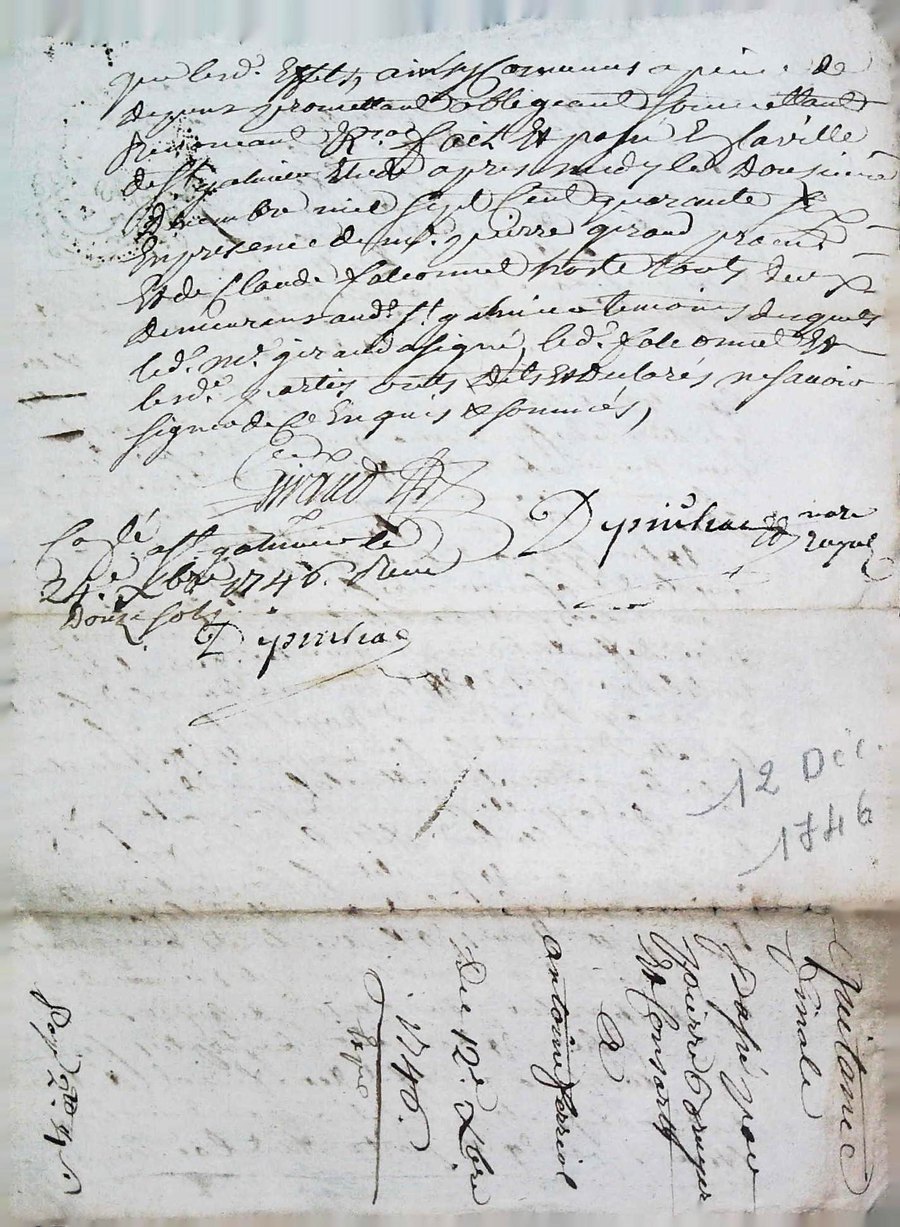 que lesd. Effets, ainsy Convenus a peine de
depens promettant obligeant soumettant
Renonceant &c. fait Et passé En laville
de St galmier Etude apres midy le Douzieme
décembre mil sept Cent quarante six
En presence de mr. pierre giraud procur.
Et de Claude falconnet hoste touts deux
demeurens aud. St galmier temoins desquels
led. mr. giraud a signé, led. falconnet Et
lesd. parties onts dits Et declarés ne savoir
signer de Ce Enquis & sommés,
Giraud
Depinhac nore royal
Collé a St galmier le
24e. Xbre 1746. Reçu
Douze sols
Depinhac
12 Déc.
1746
Quitance
finale
passé par
pierre
Et Consorts
A
antoine ferriol
Du 12e. Xbre
1746.